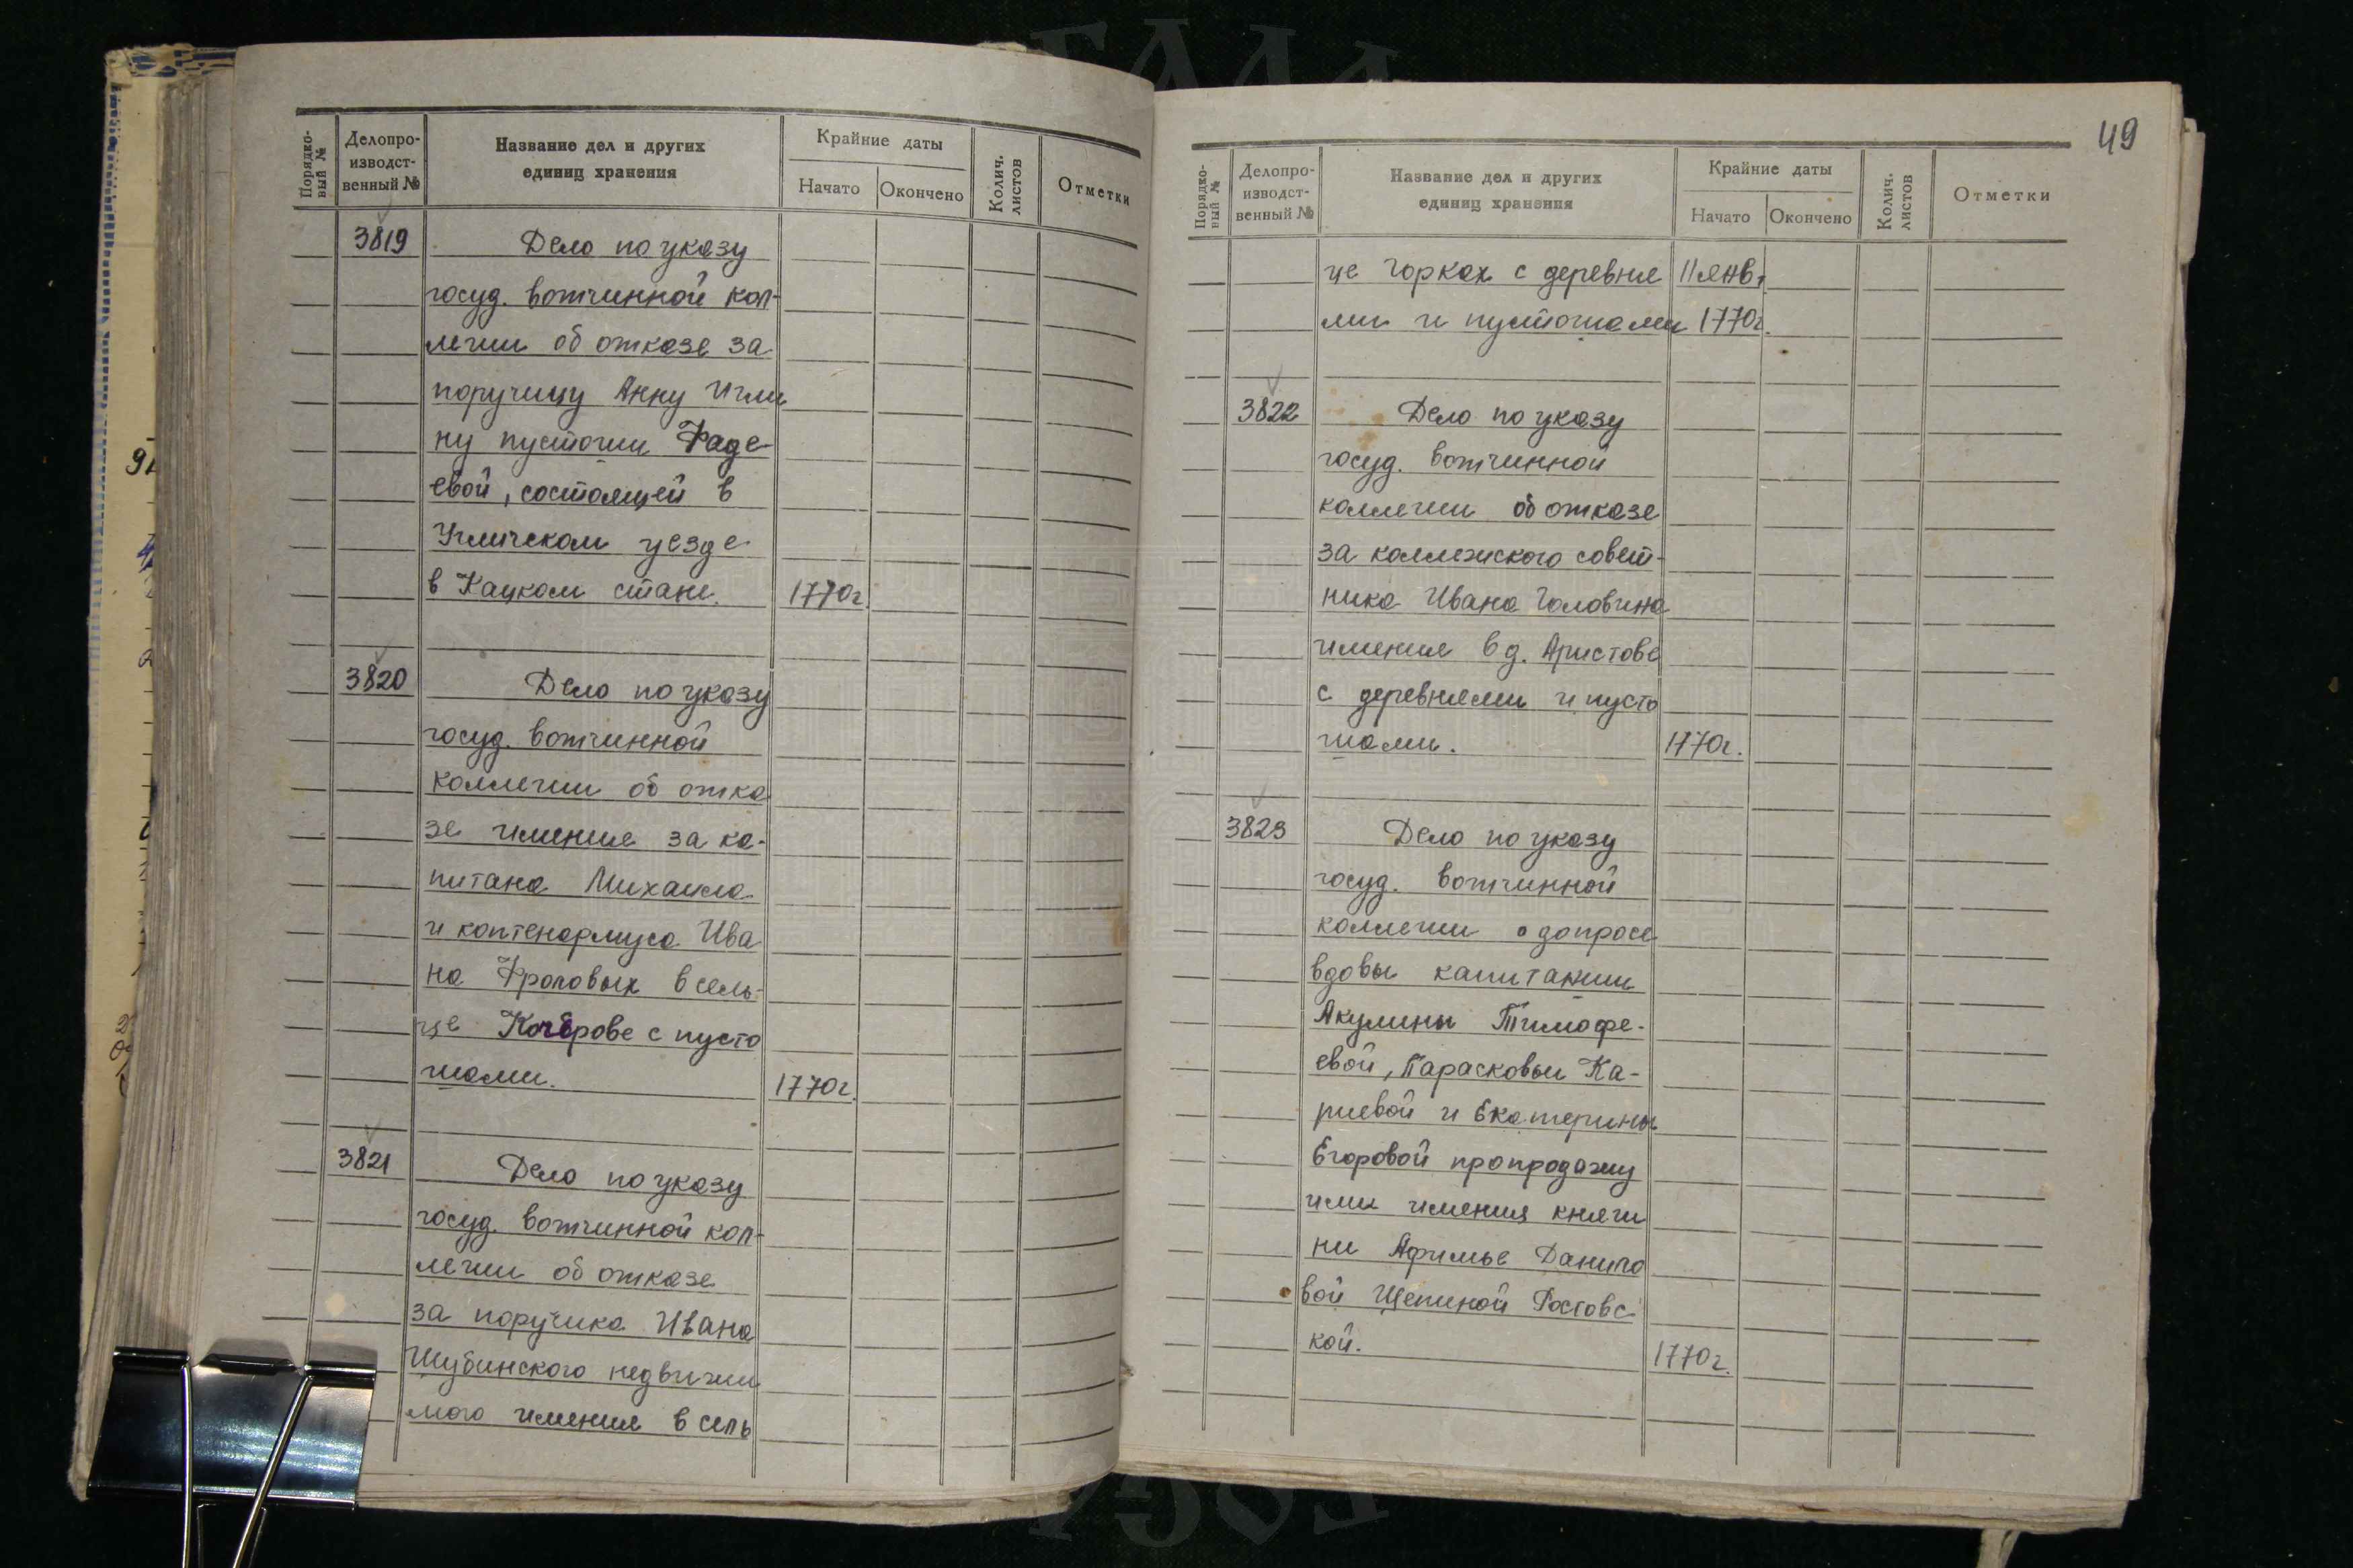 Порядко-
вый №
Делопро-
изводст-
венный №
Название дел и других
единиц хранения
Крайние даты
Начато
Окончено
Колич.
листов
Отметки
3819 Дело по указу
госуд. вотчинной кол-
легии об отказе за
поручицу Анну Игли
ну пустоши Фаде-
евой, состоящей в
Угличском уезде
в Кацком стане. 1770г.
3820 Дело по указу
госуд. вотчинной
коллегии об отка
зе имение за ка-
питана Михаила
и каптенармуса Ива
на Фроловых в сель-
це Кочерове с пусто
шами. 1770г.
3821 Дело по указу
госуд. вотчинной кол-
легии об отказе
за поручика Ивана
Шубинского недвижи
мого имения в сель
49
Порядко-
ный №
Делопро-
изводст-
венный №
Название дел и других
единиц хранения
Крайние даты
Начато
Окончено
Колич.
листов
Отметки
це Горках с деревня 11 янв.
ми и пустошами 1770г.
3822 Дело по указу
госуд. вотчинной
коллегии об отказе
за коллежского совет-
ника Ивана Головина
имения в д. Аристове
с деревнями и пусто
шами. 1770г.
3823 Дело по указу
госуд. вотчинной
коллегии о допросе
вдовы капитанши
Акулины Тимофе-
евой, Парасковьи Ка-
риевой и Екатерины
Егоровой пропродажу
ими имения княги
ни Афимье Данило
вой Щепиной Ростовс
кой. 1770г.